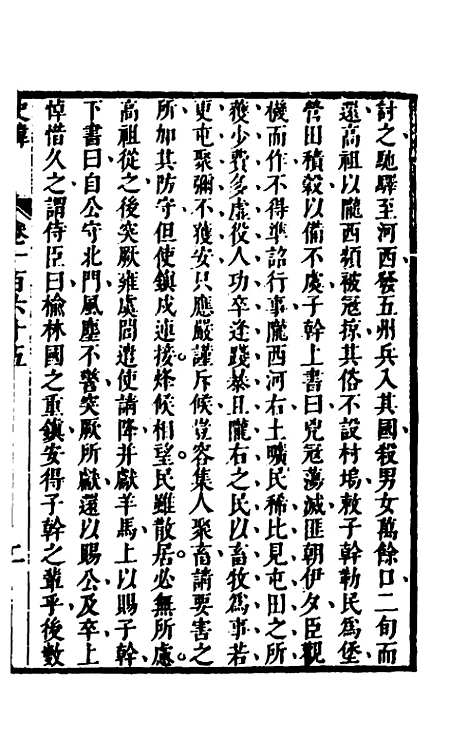 討之馳驛至河西發五州兵入其國殺男女萬餘口二旬而
還高祖以隴西頻被寇掠其俗不設村塢敕子幹勒民爲堡
營田積穀以備不虞子幹上書曰兇寇蕩滅匪朝伊夕臣觀
機而作不得準詔行事隴西河右土曠民稀比見屯田之所
獲少費多虛役人功卒逢踐暴且隴右之民以畜牧爲事若
更屯聚彌不獲安只應嚴謹斥候豈容集人聚畜請要害之
所加其防守但使鎮戍連接烽候相望民雖散居必無所慮
高祖從之後突厥雍虞閭遣使請降并獻羊馬上以賜子幹
下書曰自公守北門風塵不警突厥所獻還以賜公及卒上
悼惜久之謂侍臣曰榆林國之重鎮安得子幹之輩乎後數
史緯
卷一百六十五